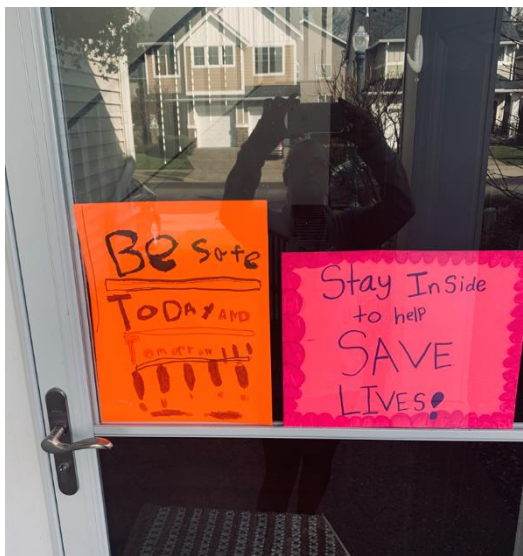 Be safe
TODAY AND
Tomorrow!!!
!!!!!
Stay InSide
to help
SAVE
LIVES!